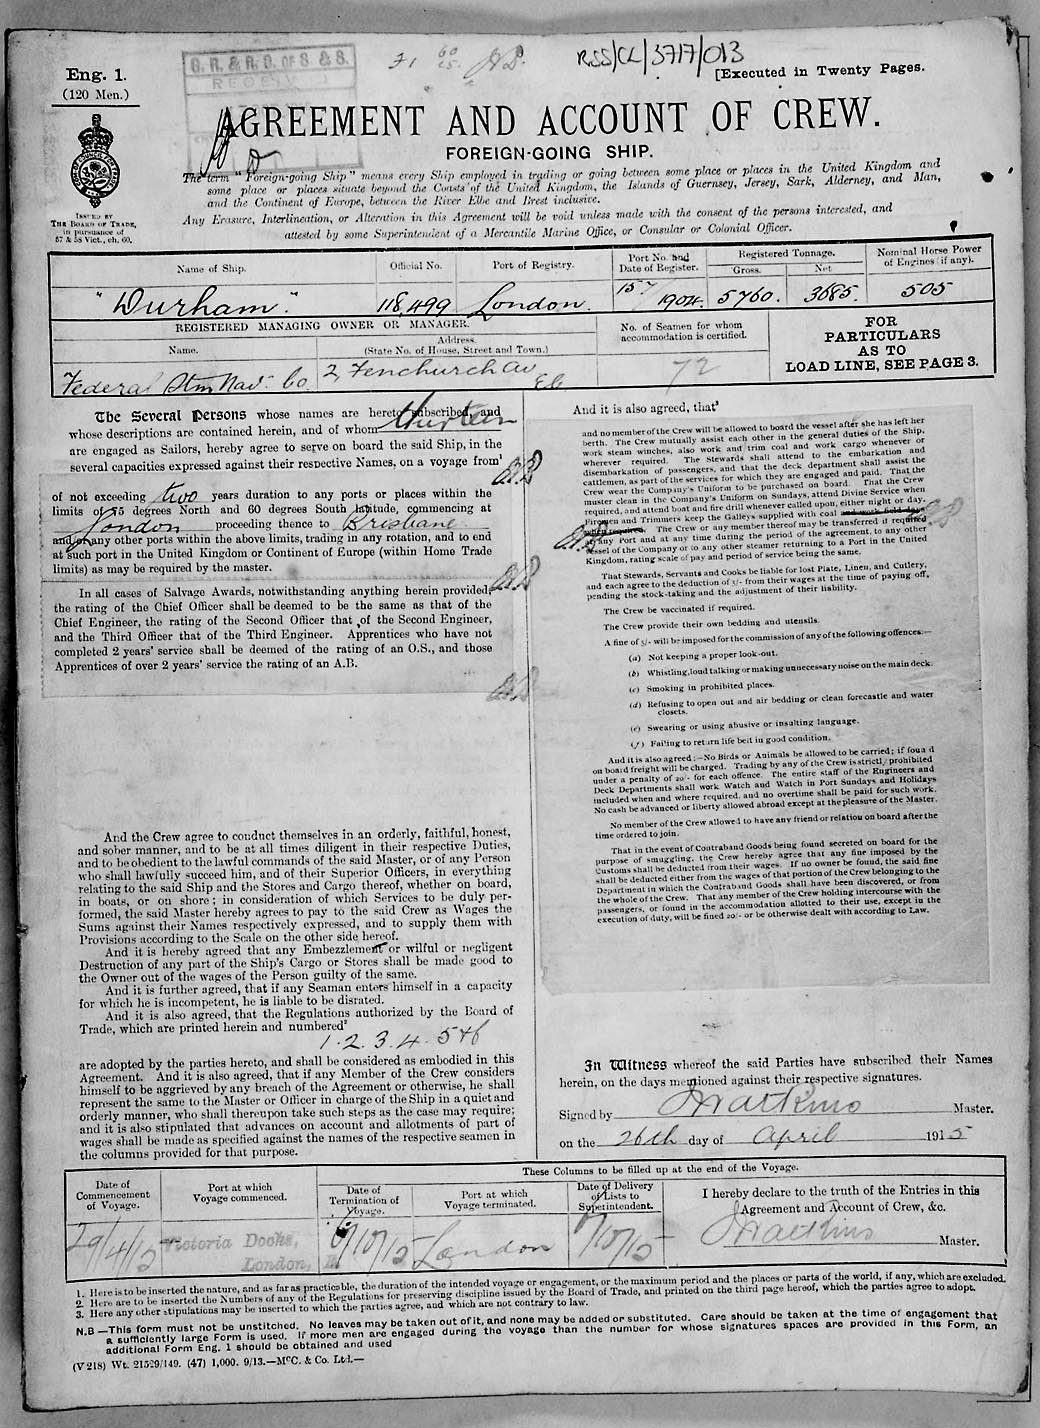 Eng. 1.
(120 Men.)
G. R. & R. O. OF S & S.
RECEIVED
RSS/CL/3717/013
[Executed in Twenty Pages.
AGREEMENT AND ACCOUNT OF CREW.
FOREIGN-GOING SHIP.
The term "Foreign-going Ship" means every Ship employed in trading or going between some place or places in the United Kingdom and
some place or places situate beyond the Coasts of the United Kingdom, the Islands of Guernsey, Jersey, Sark, Alderney, and Man,
and the Continent of Europe, between the River Elbe and Brest inclusive.
Any Erasure, Interlineation, or Alteration in this Agreement will be void unless made with the consent of the persons interested, and
attested by some Superintendent of a Mercantile Marine Office, or Consular or Colonial Officer.
ISSUED BY
THE BOARD OF TRADE,
in pursuance of
57 & 58 Vict., ch. 60.
Name of Ship.
Official No.
Port of Registry.
Port No. and
Date of Register.
Registered Tonnage.
Gross.
Net
Nominal Horse Power
of Engines (if any).
"Durham"
118,499
London
157/1904.
5760.
3685.
505
REGISTERED MANAGING OWNER OR MANAGER.
Name.
Address.
(State No. of House, Street and Town.)
No. of Seamen for whom
accommodation is certified.
FOR
PARTICULARS
AS TO
LOAD LINE, SEE PAGE 3.
Federal Stm Nav. Co.
2, Fenchurch Av
E.C.
72
The Several Persons whose names are hereto subscribed, and
whose descriptions are contained herein, and of whom thirteen
are engaged as Sailors, hereby agree to serve on board the said Ship, in the
several capacities expressed against their respective Names, on a voyage from¹
of not exceeding two years duration to any ports or places within the
limits of 75 degrees North and 60 degrees South latitude, commencing at
London proceeding thence to Brisbane
and/or any other ports within the above limits, trading in any rotation, and to end
at such port in the United Kingdom or Continent of Europe (within Home Trade
limits) as may be required by the master.
In all cases of Salvage Awards, notwithstanding anything herein provided,
the rating of the Chief Officer shall be deemed to be the same as that of the
Chief Engineer, the rating of the Second Officer that of the Second Engineer,
and the Third Officer that of the Third Engineer. Apprentices who have not
completed 2 years' service shall be deemed of the rating of an O.S., and those
Apprentices of over 2 years' service the rating of an A.B.
And the Crew agree to conduct themselves in an orderly, faithful, honest,
and sober manner, and to be at all times diligent in their respective Duties,
and to be obedient to the lawful commands of the said Master, or of any Person
who shall lawfully succeed him, and of their Superior Officers, in everything
relating to the said Ship and the Stores and Cargo thereof, whether on board,
in boats, or on shore; in consideration of which Services to be duly per-
formed, the said Master hereby agrees to pay to the said Crew as Wages the
Sums against their Names respectively expressed, and to supply them with
Provisions according to the Scale on the other side hereof.
And it is hereby agreed that any Embezzlement or wilful or negligent
Destruction of any part of the Ship's Cargo or Stores shall be made good to
the Owner out of the wages of the Person guilty of the same.
And it is further agreed, that if any Seaman enters himself in a capacity
for which he is incompetent, he is liable to be disrated.
And it is also agreed, that the Regulations authorized by the Board of
Trade, which are printed herein and numbered²
1. 2. 3. 4. 5 & 6
are adopted by the parties hereto, and shall be considered as embodied in this
Agreement. And it is also agreed, that if any Member of the Crew considers
himself to be aggrieved by any breach of the Agreement or otherwise, he shall
represent the same to the Master or Officer in charge of the Ship in a quiet and
orderly manner, who shall thereupon take such steps as the case may require;
and it is also stipulated that advances on account and allotments of part of
wages shall be made as specified against the names of the respective seamen in
the columns provided for that purpose.
And it is also agreed, that³
and no member of the Crew will be allowed to board the vessel after she has left her
berth. The Crew mutually assist each other in the general duties of the Ship,
work steam winches, also work and trim coal and work cargo whenever or
wherever required. The Stewards shall attend to the embarkation and
disembarkation of passengers, and that the deck department shall assist the
cattlemen, as part of the services for which they are engaged and paid. That the
Crew wear the Company's Uniform to be purchased on board. That the Crew
muster clean in the Company's Uniform on Sundays, attend Divine Service when
required, and attend boat and fire drill whenever called upon, either night or day.
Firemen and Trimmers keep the Galleys supplied with coal and work field days
when required. The Crew or any member thereof may be transferred if required
at any Port and at any time during the period of the agreement, to any other
vessel of the Company or to any other steamer returning to a Port in the United
Kingdom, rating scale of pay and period of service being the same.
That Stewards, Servants and Cooks be liable for lost Plate, Linen, and Cutlery,
and each agree to the deduction of 5/- from their wages at the time of paying off,
pending the stock-taking and the adjustment of their liability.
The Crew be vaccinated if required.
The Crew provide their own bedding and utensils.
A fine of 5/- will be imposed for the commission of any of the following offences:—
(a) Not keeping a proper look-out.
(b) Whistling, loud talking or making unnecessary noise on the main deck.
(c) Smoking in prohibited places.
(d) Refusing to open out and air bedding or clean forecastle and water
closets.
(e) Swearing or using abusive or insulting language.
(f) Failing to return life belt in good condition.
And it is also agreed:—No Birds or Animals be allowed to be carried; if found
on board freight will be charged. Trading by any of the Crew is strictly prohibited
under a penalty of 20/- for each offence. The entire staff of the Engineers and
Deck Departments shall work Watch and Watch in Port Sundays and Holidays
included when and where required, and no overtime shall be paid for such work.
No cash be advanced or liberty allowed abroad except at the pleasure of the Master.
No member of the Crew allowed to have any friend or relation on board after the
time ordered to join.
That in the event of Contraband Goods being found secreted on board for the
purpose of smuggling, the Crew hereby agree that any fine imposed by the
Customs shall be deducted from their wages. If no owner be found, the said fine
shall be deducted either from the wages of that portion of the Crew belonging to the
Department in which the Contraband Goods shall have been discovered, or from
the whole of the Crew. That any member of the Crew holding intercourse with the
passengers, or found in the accommodation allotted to their use, except in the
execution of duty, will be fined 20/- or be otherwise dealt with according to Law.
In Witness whereof the said Parties have subscribed their Names
herein, on the days mentioned against their respective signatures.
Signed by Watkins Master.
on the 26th day of April 1915
These Columns to be filled up at the end of the Voyage.
Date of
Commencement
of Voyage.
Port at which
Voyage commenced.
Date of
Termination of
Voyage.
Port at which
Voyage terminated.
Date of Delivery
of Lists to
Superintendent.
I hereby declare to the truth of the Entries in this
Agreement and Account of Crew, &c.
29/4/15
Victoria Docks,
London,
6/10/15
London
6/10/15
Watkins Master.
1. Here is to be inserted the nature, and as far as practicable, the duration of the intended voyage or engagement, or the maximum period and the places or parts of the world, if any, which are excluded.
2. Here are to be inserted the Numbers of any of the Regulations for preserving discipline issued by the Board of Trade, and printed on the third page hereof, which the parties agree to adopt.
3. Here any other stipulations may be inserted to which the parties agree, and which are not contrary to law.
N.B—This form must not be unstitched. No leaves may be taken out of it, and none may be added or substituted. Care should be taken at the time of engagement that
a sufficiently large Form is used. If more men are engaged during the voyage than the number for whose signatures spaces are provided in this Form, an
additional Form Eng. 1 should be obtained and used
(V 218) Wt. 21529/149. (47) 1,000. 9/13.—McC. & Co. Ltd.—